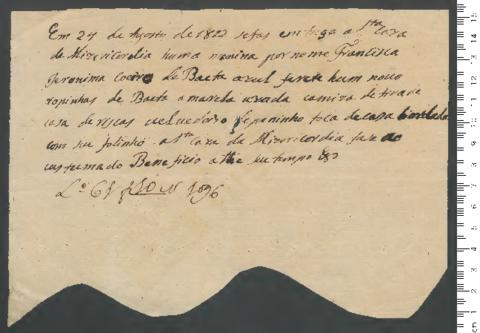 Em 24 de Agosto de 1822 se fas emtrega a Sta Caza
de Mizericordia huma menina por nome Francisca
Jeronima Coeiro de Baeta azul ferete hum novo
ropinhas de Baeta amarela uzada camiza de tira de
caza de riscas de paninho toca de casa bordada
com seu folinho a Sta caza da Mizericordia fas ao
custumado Beneficio athe seu tempo &a
Lo 61 f 50 N 1896